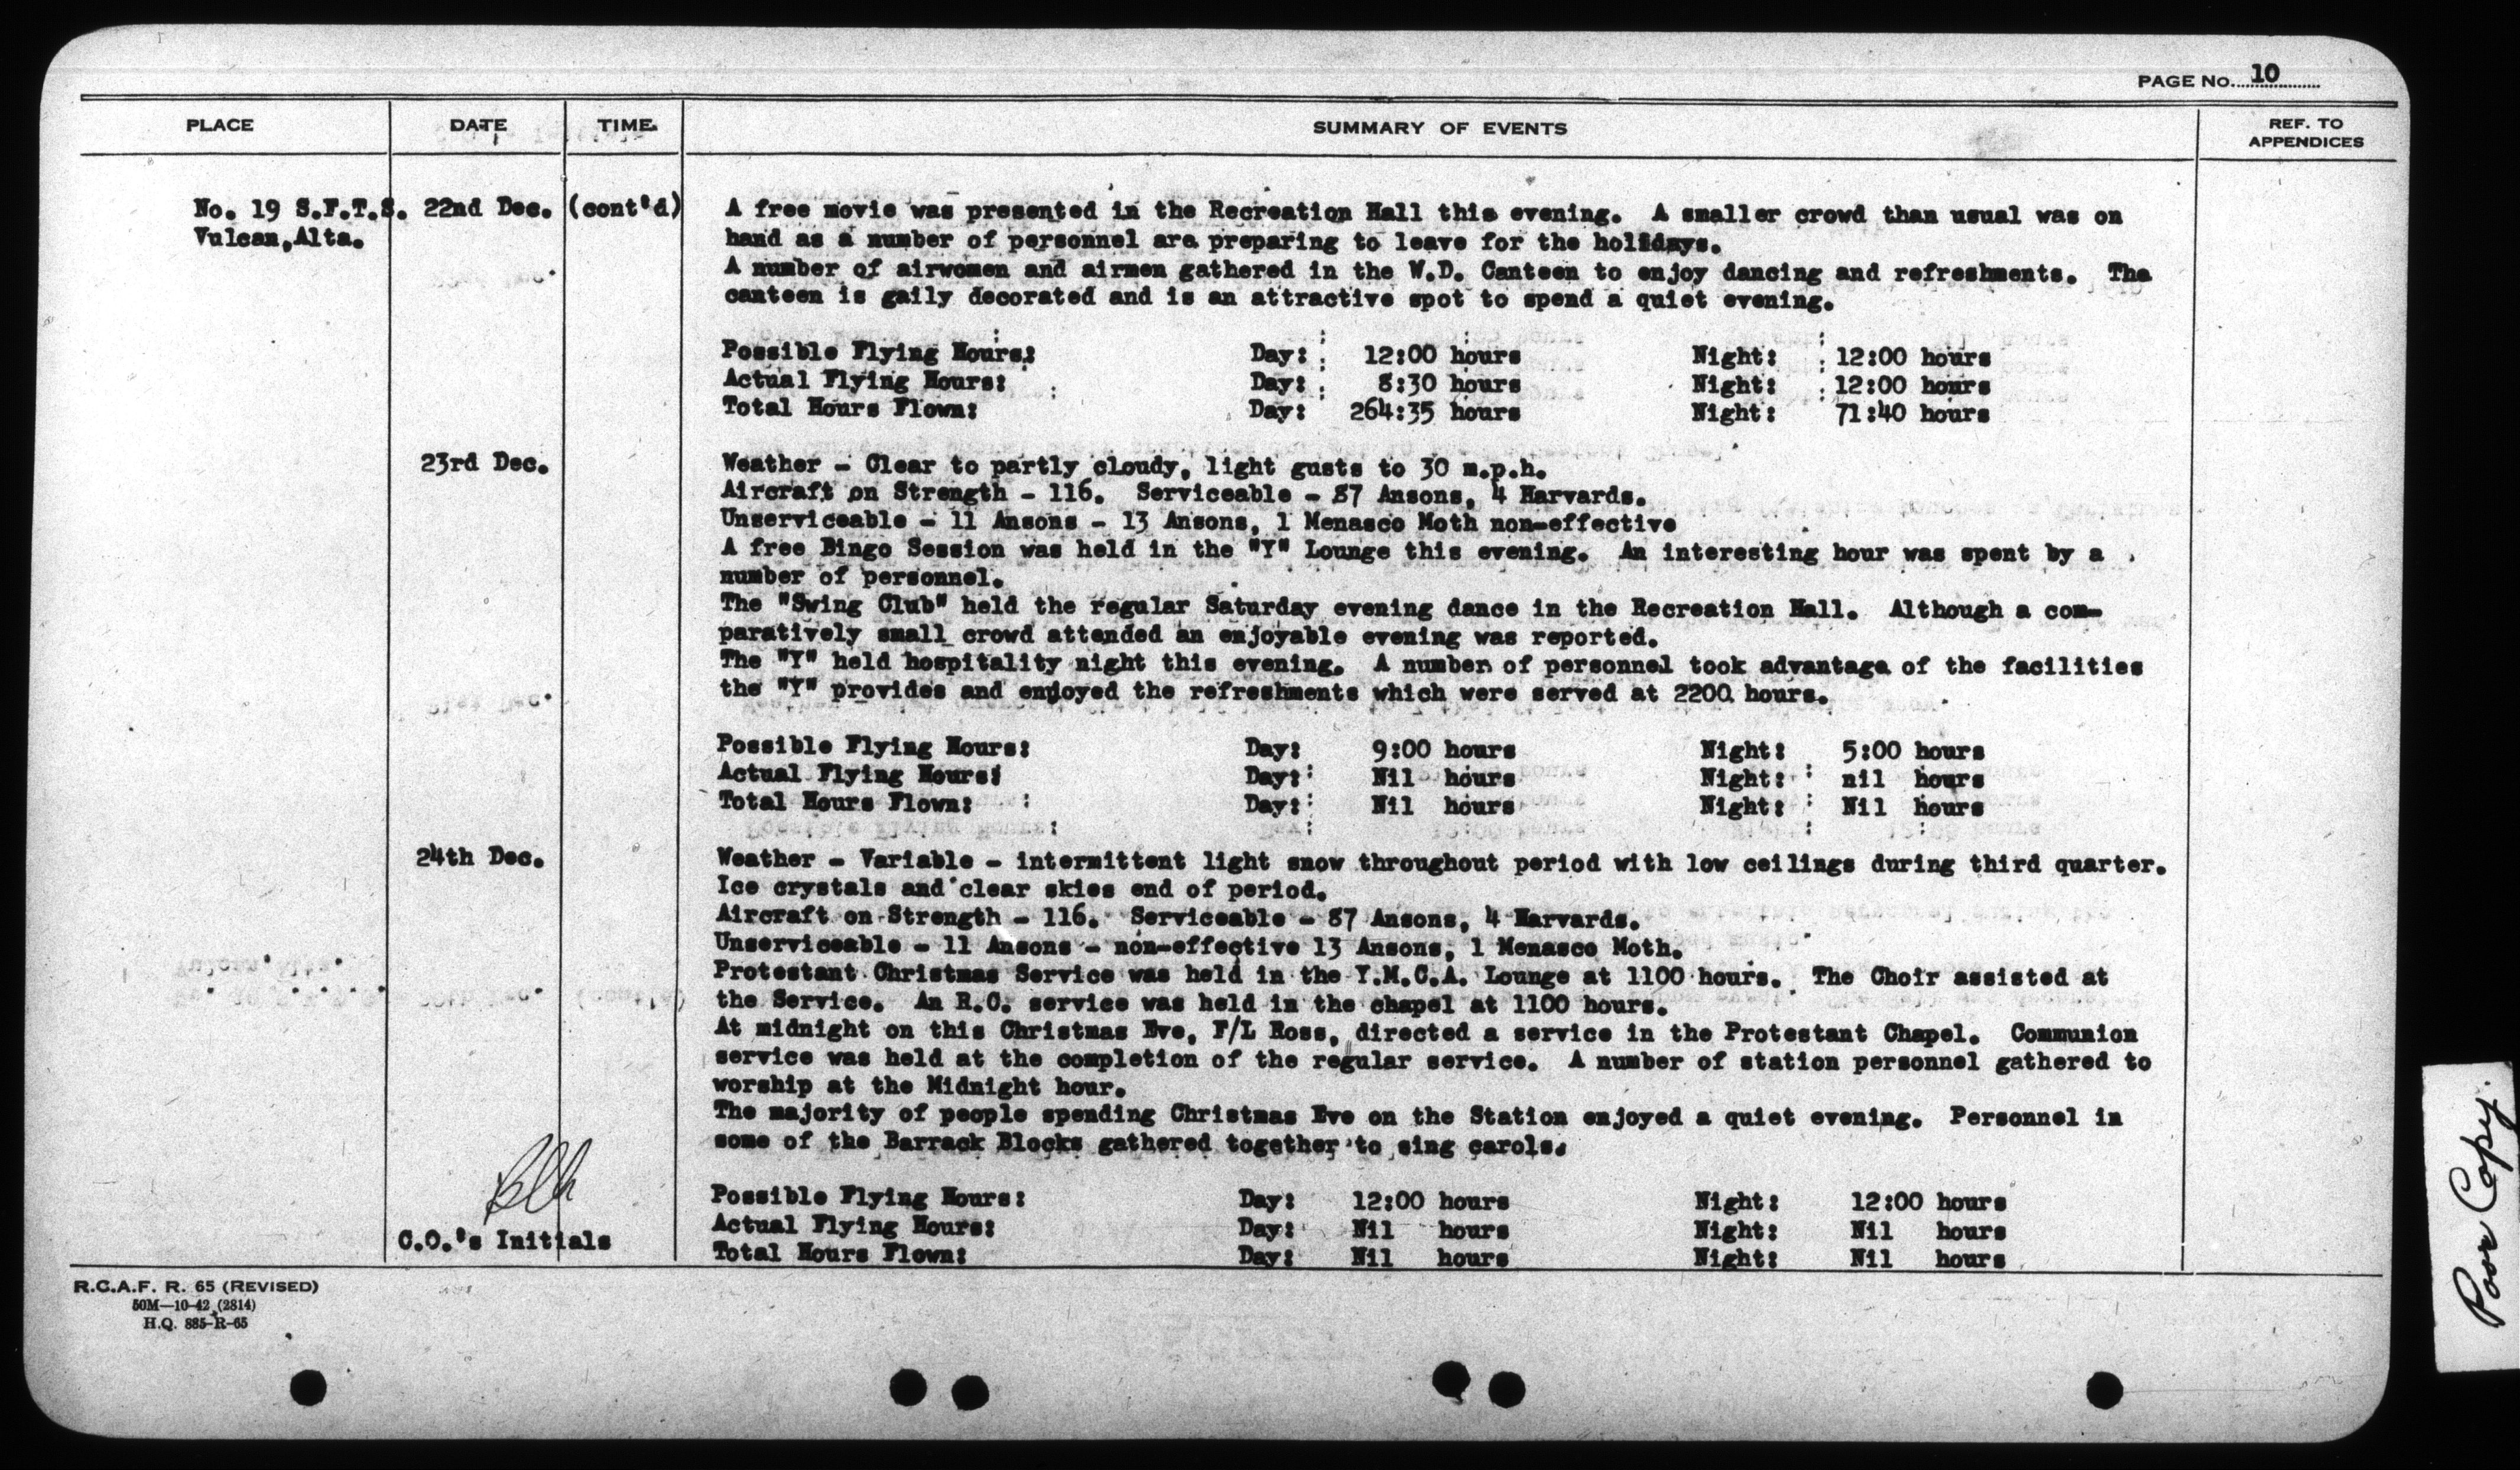 PAGE No. 10
PLACE DATE TIME SUMMARY OF EVENTS REF. TO APPENDICES
No. 19 S.F.T.S. 22nd Dec. (cont'd) A free movie was presented in the Recreation Hall this evening. A smaller crowd than usual was on
Vulcan, Alta. hand as a number of personnel are preparing to leave for the holidays.
A number of airwomen and airmen gathered in the W.D. Canteen to enjoy dancing and refreshments. The
canteen is gaily decorated and is an attractive spot to spend a quiet evening.
Possible Flying Hours: Day: 12:00 hours Night: 12:00 hours
Actual Flying Hours: Day: 8:30 hours Night: 12:00 hours
Total Hours Flown: Day: 264:35 hours Night: 71:40 hours
23rd Dec. Weather - Clear to partly cloudy, light gusts to 30 m.p.h.
Aircraft on Strength - 116. Serviceable - 87 Ansons, 4 Harvards.
Unserviceable - 11 Ansons - 13 Ansons, 1 Menasco Moth non-effective
A free Bingo Session was held in the "Y" Lounge this evening. An interesting hour was spent by a
number of personnel.
The "Swing Club" held the regular Saturday evening dance in the Recreation Hall. Although a com-
paratively small crowd attended an enjoyable evening was reported.
The "Y" held hospitality night this evening. A number of personnel took advantage of the facilities
the "Y" provides and enjoyed the refreshments which were served at 2200 hours.
Possible Flying Hours: Day: 9:00 hours Night: 5:00 hours
Actual Flying Hours: Day: Nil hours Night: nil hours
Total Hours Flown: Day: Nil hours Night: Nil hours
24th Dec. Weather - Variable - intermittent light snow throughout period with low ceilings during third quarter.
Ice crystals and clear skies end of period.
Aircraft on Strength - 116. Serviceable - 87 Ansons, 4 Harvards.
Unserviceable - 11 Ansons - non-effective 13 Ansons, 1 Menasco Moth.
Protestant Christmas Service was held in the Y.M.C.A. Lounge at 1100 hours. The Choir assisted at
the Service. An R.C. service was held in the chapel at 1100 hours.
At midnight on this Christmas Eve, F/L Ross, directed a service in the Protestant Chapel. Communion
service was held at the completion of the regular service. A number of station personnel gathered to
worship at the Midnight hour.
The majority of people spending Christmas Eve on the Station enjoyed a quiet evening. Personnel in
some of the Barrack Blocks gathered together to sing carols.
Possible Flying Hours: Day: 12:00 hours Night: 12:00 hours
Actual Flying Hours: Day: Nil hours Night: Nil hours
C.O.'s Initials
Total Hours Flown: Day: Nil hours Night: Nil hours
R.C.A.F. R. 65 (REVISED)
50M—10-42 (2814)
H.Q. 885-R-65
Poor Copy.